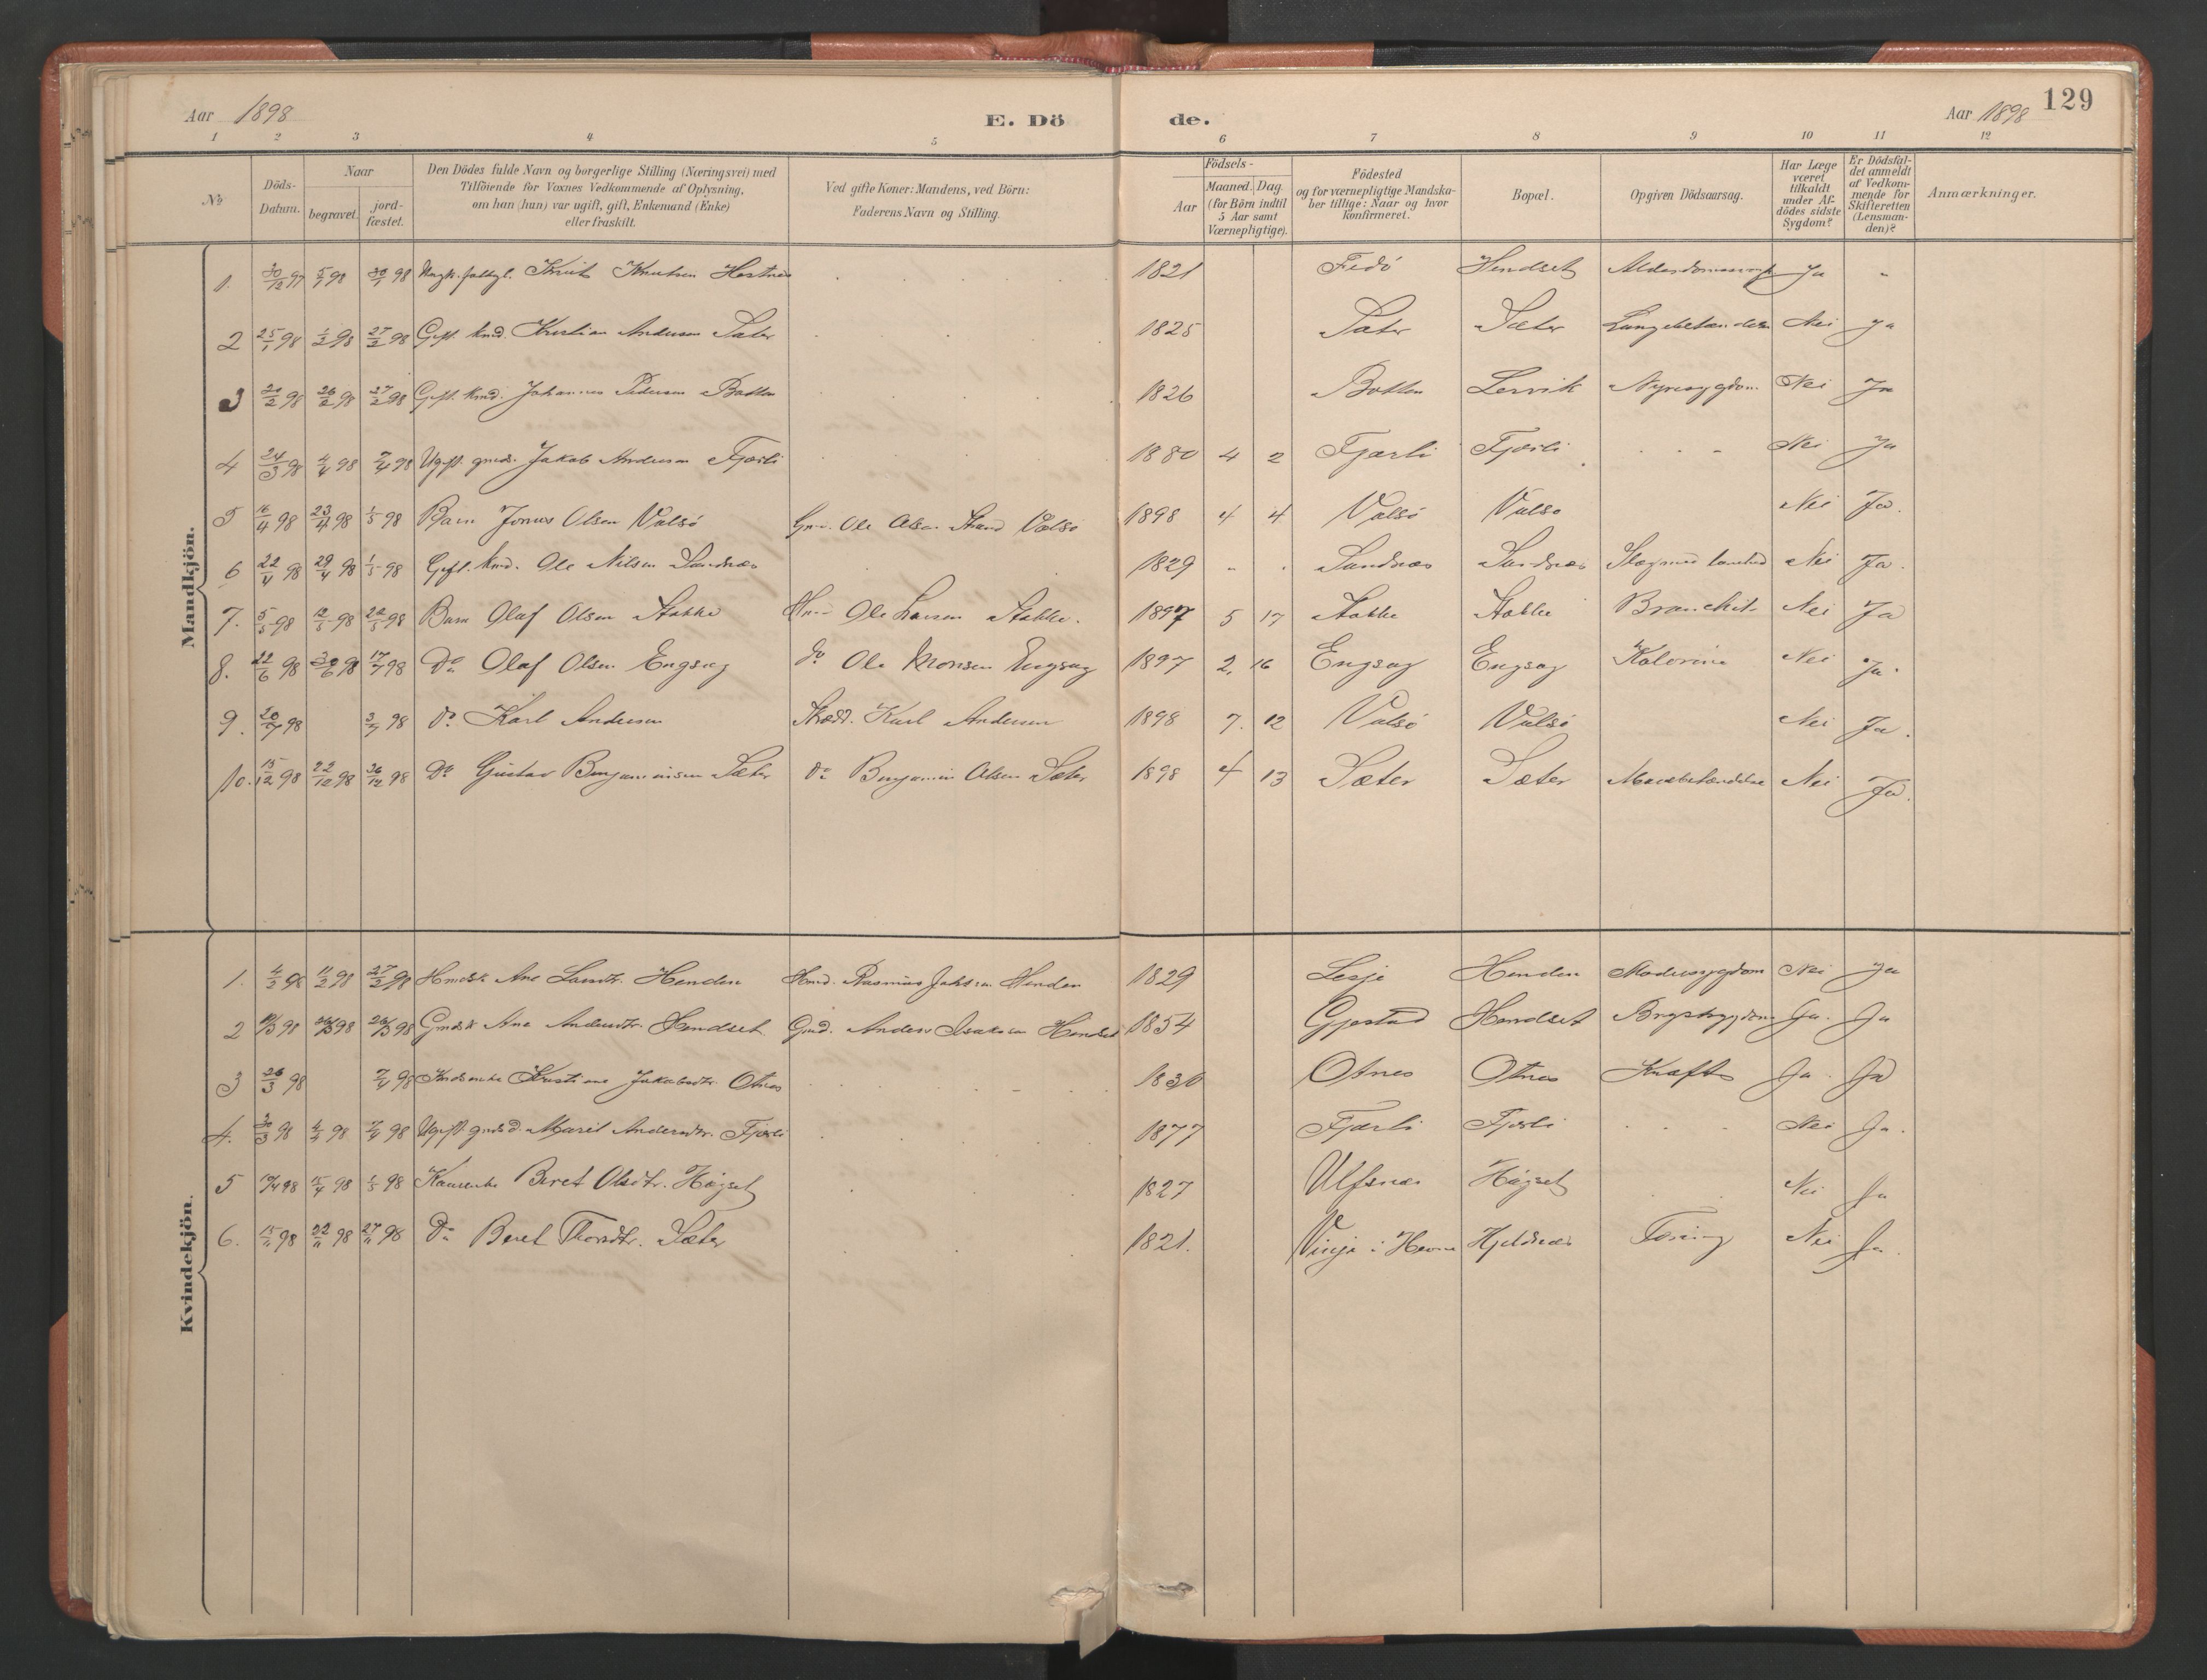 Aar 1898
E. Dö
de.
Aar 1898
129
1 2 3 4 5 6 7 8 9 10 11 12
№
Döds-
Datum.
Naar
begravet.
jord-
fæstet.
Den Dödes fulde Navn og borgerlige Stilling (Næringsvei) med
Tilföiende for Voxnes Vedkommende af Oplysning,
om han (hun) var ugift, gift, Enkemand (Enke)
eller fraskilt.
Ved gifte Koner: Mandens, ved Börn:
Faderens Navn og Stilling.
Födsels-
Aar
Maaned.
Dag.
(for Börn indtil
5 Aar samt
Værnepligtige).
Födested
og for værnepligtige Mandska-
ber tillige: Naar og hvor
konfirmeret.
Bopæl.
Opgiven Dödsaarsag.
Har Læge
været
tilkaldt
under Af-
dödes sidste
Sygdom?
Er Dödsfal-
det anmeldt
af Vedkom-
mende for
Skifteretten
(Lensman-
den)?
Anmærkninger.
Mandkjön.
1. 30/12 97 5/1 98 30/1 98 Knut Knutsen 1821 Fedö Hendset Ja "
2 25/1 98 1/2 98 27/2 98 Gift. kmd. Kristian Andersen Sæter 1825 Sæter Sæter Lungebetændelse Nei Ja
3 20/2 98 26/2 98 27/2 98 Gift. kmd. Johannes Pedersen Botten 1826 Botten Lervik Nyresygdom Nei Ja
4 24/3 98 4/4 98 7/4 98 Ugift. gmds. Jakob Andersen Fjærli 1880 4 2 Fjærli Fjærli " Nei Ja
5 16/4 98 23/4 98 1/5 98 Barn Jonas Olsen Valsö Ole Olsen Strand Valsö 1898 4 4 Valsö Valsö Nei Ja.
6 22/4 98 29/4 98 1/5 98 Gift. kmd. Ole Nilsen Sandnæs 1829 " " Sandnæs Sandnæs Nei Ja.
7. 5/5 98 12/5 98 22/5 98 Barn Olaf Olsen Stokke Ole Larsen Stokke. 1897 5 17 Stokke Stokke Bronchit Nei Ja
8. 22/6 98 30/6 98 17/7 98 Do Olaf Olsen Engsag do Ole Monsen Engsag 1897 2. 16 Engsag Engsag Kolerine Nei Ja.
9. 20/7 98 98 do Karl Andersen Skædd. Karl Andersen 1898 7. 12 Valsö Valsö Nei Ja.
10. 15/12 98 22/12 98 26/12 98 Do Gustav Benjaminsen Sæter do Benjamin Olsen Sæter 1898 4 13 Sæter Sæter Mavebetændelse Nei Ja.
Kvindekjön.
1. 98 11/2 98 27/2 98 Ane Larsdtr. Henden Kmd. Rasmus Henden 1829 Lesje Henden Modersygdom Nei Ja
2 98 98 98 Gmdsk Ane Andersdtr. Hendset Gmd. Anders Isaksen Hendset 1854 Gjestad Hendset Brystsygdom Ja. Ja
3 26/3 98 7/4 98 Kristiane Jakobsdtr. Otnes 1830 Otnes Otnes Kræft Ja. Ja
4. 30/3 98 4/4 98 7/4 98 Ugift gmdsd. Marit Andersdtr. Fjærli 1877 Fjærli Fjærli " Nei Ja.
5 98 15/4 98 1/5 98 Beret Olsdtr. Högset 1827 Ulfsnæs Högset Nei Ja
6. 15/11 98 22/11 98 27/11 98 Do Beret Thorsdtr. Sæter 1821. Vinje i Hevne Hjeldnæs Tæring Nei Ja.